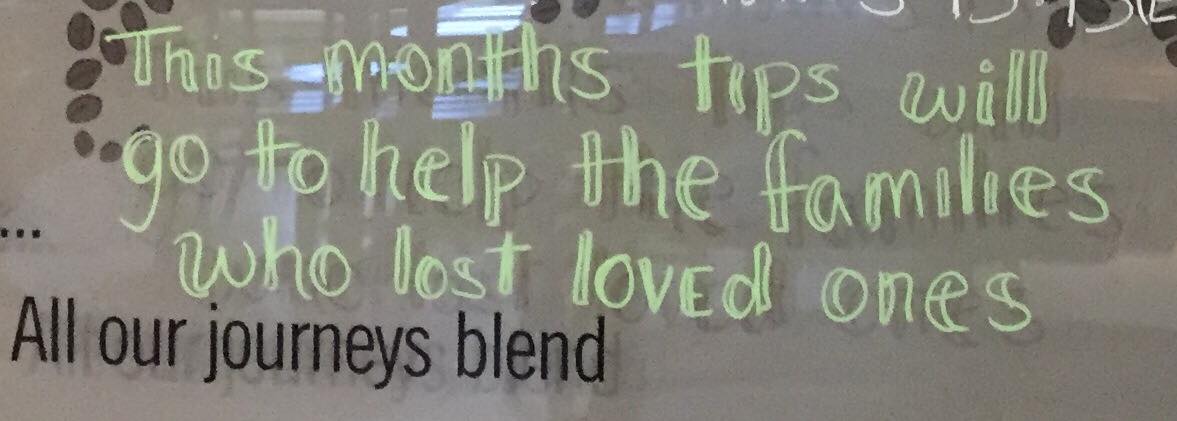 This months tips will
go to help the families
who lost loved ones
...
All our journeys blend